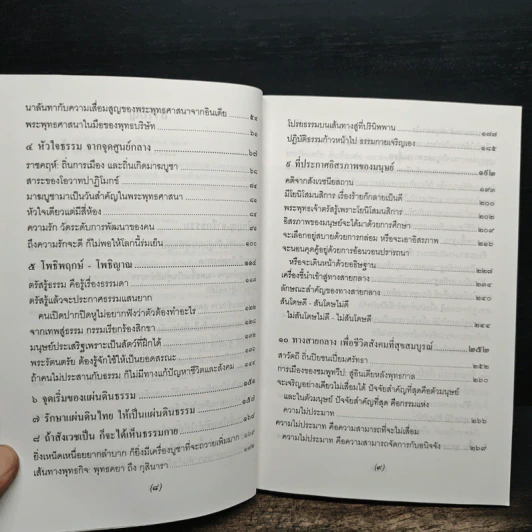 นาลันทากับความเสื่อมสูญของพระพุทธศาสนาจากอินเดีย ๕๔
พระพุทธศาสนาในมือของพุทธบริษัท ๖๑
๔ หัวใจธรรม จากจุดศูนย์กลาง ๖๘
ราชคฤห์: ถิ่นการเมือง และถิ่นเกิดมาฆบูชา
สาระของโอวาทปาฏิโมกข์
มาฆบูชามาเป็นวันสำคัญในพระพุทธศาสนา
หัวใจเดียวแต่มีสี่ห้อง
ความรัก วัดระดับการพัฒนาของคน
ถึงความรักจะดี ก็ไม่พอให้โลกนี้ร่มเย็น ๑๐๐
๕ โพธิพฤกษ์ - โพธิญาณ ๑๑๔
ตรัสรู้ธรรม คือรู้เรื่องธรรมดา
ตรัสรู้แล้วจะประกาศธรรมแสนยาก
คนเปิดปากปิดหูไม่อยากฟังว่าตัวต้องทำอะไร ๑๒๒
จากเทพสู่ธรรม กรรมเรียกร้องสิกขา
มนุษย์ประเสริฐเพราะเป็นสัตว์ที่ฝึกได้
พระรัตนตรัย ต้องรู้จักใช้ให้เป็นยอดสรณะ
ถ้าคนไม่ประสานกับธรรม ก็ไม่มีทางแก้ปัญหาชีวิตและสังคม
๖ จุดเริ่มของแผ่นดินธรรม
๗ รักษาแผ่นดินไทย ให้เป็นแผ่นดินธรรม
๘ ถ้าสังเวชเป็น ก็จะได้เห็นธรรมกาย
ยิ่งเหนื่อยยากลำบาก ก็ยิ่งมีเครื่องบูชาที่จะถวายเพิ่มมาก
เส้นทางพุทธกิจ: พุทธคยา ถึง กุสินารา
(๘)
โปรยธรรมบนเส้นทางสู่ที่ปรินิพพาน ๑๗๘
ปฏิบัติธรรมก้าวหน้าไป ธรรมกายเจริญเอง ๑๘๕
๙ ที่ประกาศอิสรภาพของมนุษย์
คติจากสังเวชนียสถาน ๑๙๓
มีโยนิโสมนสิการ เรื่องร้ายก็กลายเป็นดี ๒๐๐
พระพุทธเจ้าตรัสรู้เพราะโยนิโสมนสิการ ๒๐๒
อิสรภาพของมนุษย์จะได้มาด้วยการศึกษา ๒๐๙
จะเลือกอยู่สบายด้วยการกล่อม หรือจะเอาอิสรภาพ ๒๑๖
จะนอนคุดคู้อยู่ด้วยการอ้อนวอนปรารถนา
หรือจะเดินหน้าด้วยอธิษฐาน ๒๒๗
เครื่องชี้นำเข้าสู่ทางสายกลาง
ลักษณะสำคัญของทางสายกลาง ๒๔๐
สันโดษดี - สันโดษไม่ดี
ไม่สันโดษไม่ดี - ไม่สันโดษดี ๒๔๔
๑๐ ทางสายกลาง เพื่อชีวิตสังคมที่สุขสมบูรณ์ ๒๕๒
สาวัตถี ถิ่นปิยชนเปี่ยมศรัทธา ๒๕๒
การเมืองของชมพูทวีป: สู่อินเดียหลังพุทธกาล ๒๖๐
จะเจริญอย่างเดียวไม่เสื่อมได้ ปัจจัยสำคัญที่สุดคือตัวมนุษย์
และในตัวมนุษย์ ปัจจัยสำคัญที่สุด คือกรรมแห่ง
ความไม่ประมาท ๒๖๖
ความไม่ประมาท คือความสามารถที่จะไม่เสื่อม
ความไม่ประมาท คือความสามารถจัดการกับอนิจจัง ๒๖๙
(๙)